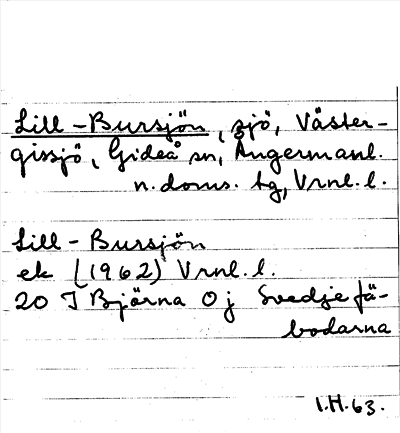 Lill-Bursjön, sjö, Väster-
gissjö, Gideå sn, Ångermanl.
n. doms. tg, Vrnl. l.
Lill-Bursjön
ek (1962) Vrnl. l.
20 J Björna O j Svedje fä-
bodarna
I.H. 63.